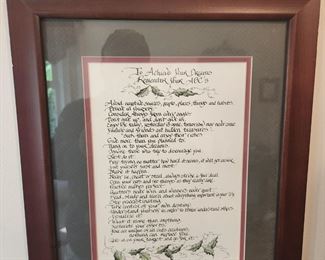 To Achieve Your Dreams
Remember Your ABC's
Avoid negative sources, people, places, things and habits.
Believe in yourself.
Consider things from every angle.
Don't give up, and don't give in.
Enjoy life today, yesterday is gone, tomorrow may never come.
Family and friends are hidden treasures
Seek them and enjoy their riches.
Give more than you planned to.
Hang on to your dreams.
Ignore those who try to discourage you.
Just do it.
Keep trying no matter how hard it seems, it will get easier.
Love yourself first and most.
Make it happen.
Never lie, cheat or steal, always strike a fair deal.
Open your eyes and see things as they really are.
Practice makes perfect.
Quitters never win and winners never quit.
Read, study and learn about everything important in your life.
Stop procrastinating.
Take control of your own destiny.
Understand yourself in order to better understand others.
Visualize it.
Want it more than anything.
Xcellerate your efforts.
You are unique of all God's creations,
nothing can replace you.
Zero in on your target and go for it.